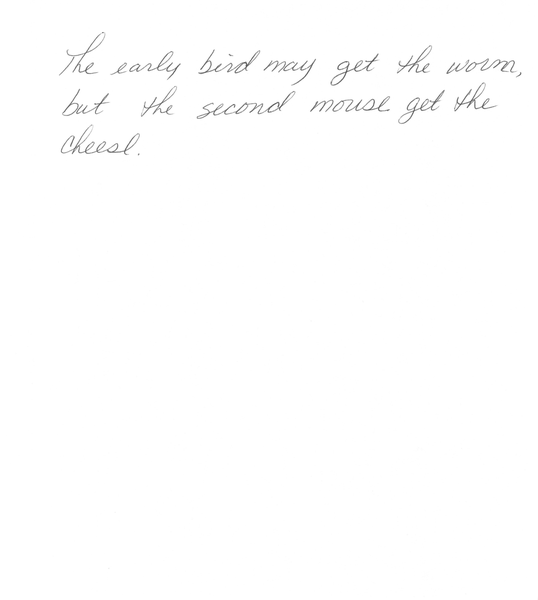 The early bird may get the worm,
but the second mouse get the
cheese.